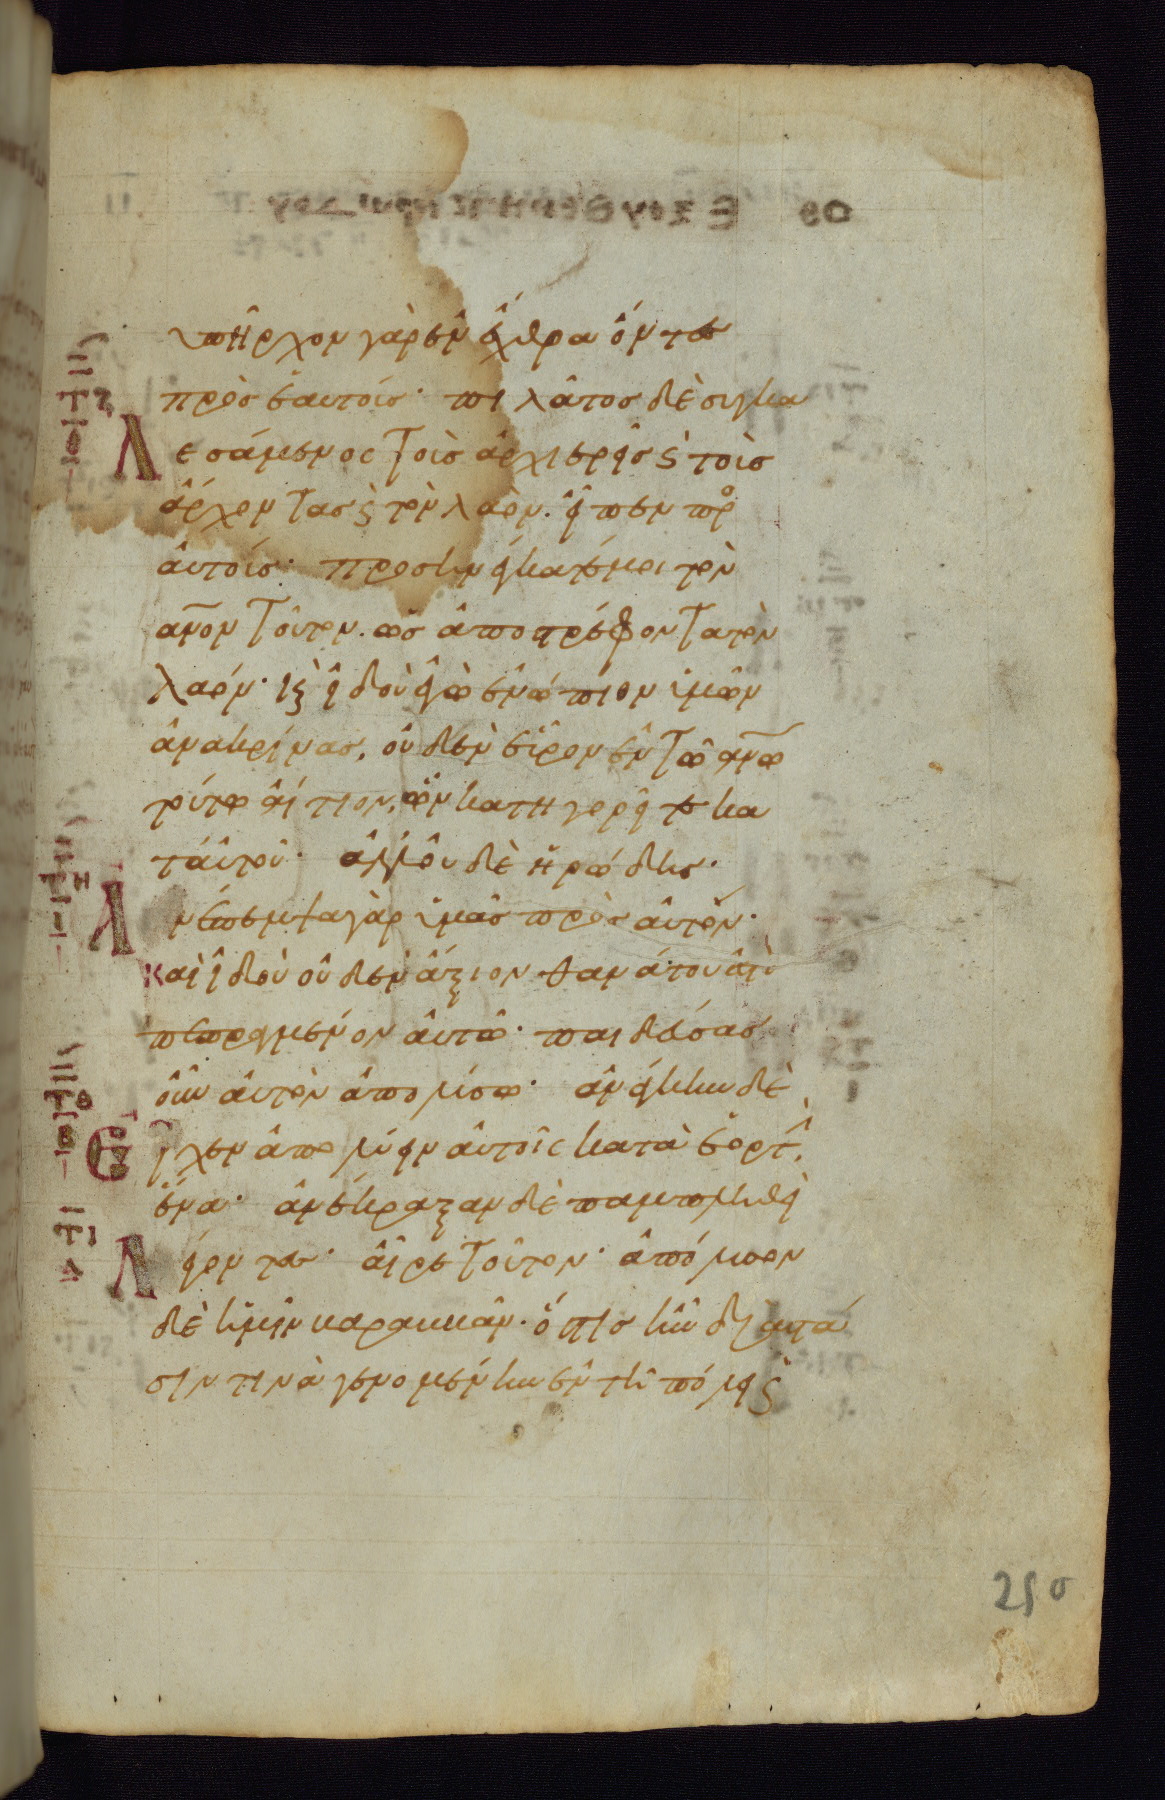 ὑπῆρχον γὰρ ἐν ἔχθρα ὄντες
τζ πρὸς ἑαυτούς· πιλάτος δὲ συγκα
Λεσάμενος τοὺς ἀρχιερεῖς ϛ τοὺς
ἄρχοντας ϛ τὸν λαὸν. εἶπεν προ
αὐτούς· προσηνέγκατέ μοι τὸν
ανον τοῦτον. ὡς ἀποστρέφοντα τὸν
λαόν· κϛ ἰδοὺ ἐγὼ ἐνώπιον ὑμῶν
ἀνακρίνας, οὐδὲν εὗρον ἐν τῶ ανω
τούτω αἴτιον, ὧν κατηγορεῖτε κα
τη τ αὐτοῦ· ἀλλ οὐδὲ ἡρώδης·
ι Ανέπεμψα γὰρ ὑμᾶς πρὸς αὐτόν·
καὶ ἰδοὺ οὐδὲν ἄξιον θανάτου ἐστὶ
πεπραγμένον αὐτῶ· παιδεύσας
τθ οὖν αὐτὸν ἀπολύσω· ἀνάγκην δὲ
β Εἶχεν ἀπολύειν αὐτοῖς κατὰ ἑορτὴν
ἕνα· ἀνέκραξαν δὲ παμπληθεὶ
τι Λέγοντες· αἶρε τοῦτον· ἀπόλυσον
δὲ ἡμῖν βαραββᾶν· ὅστις ἦν διὰ στά
σιν τινὰ γενομένην ἐν τῆ πόλει ϛ